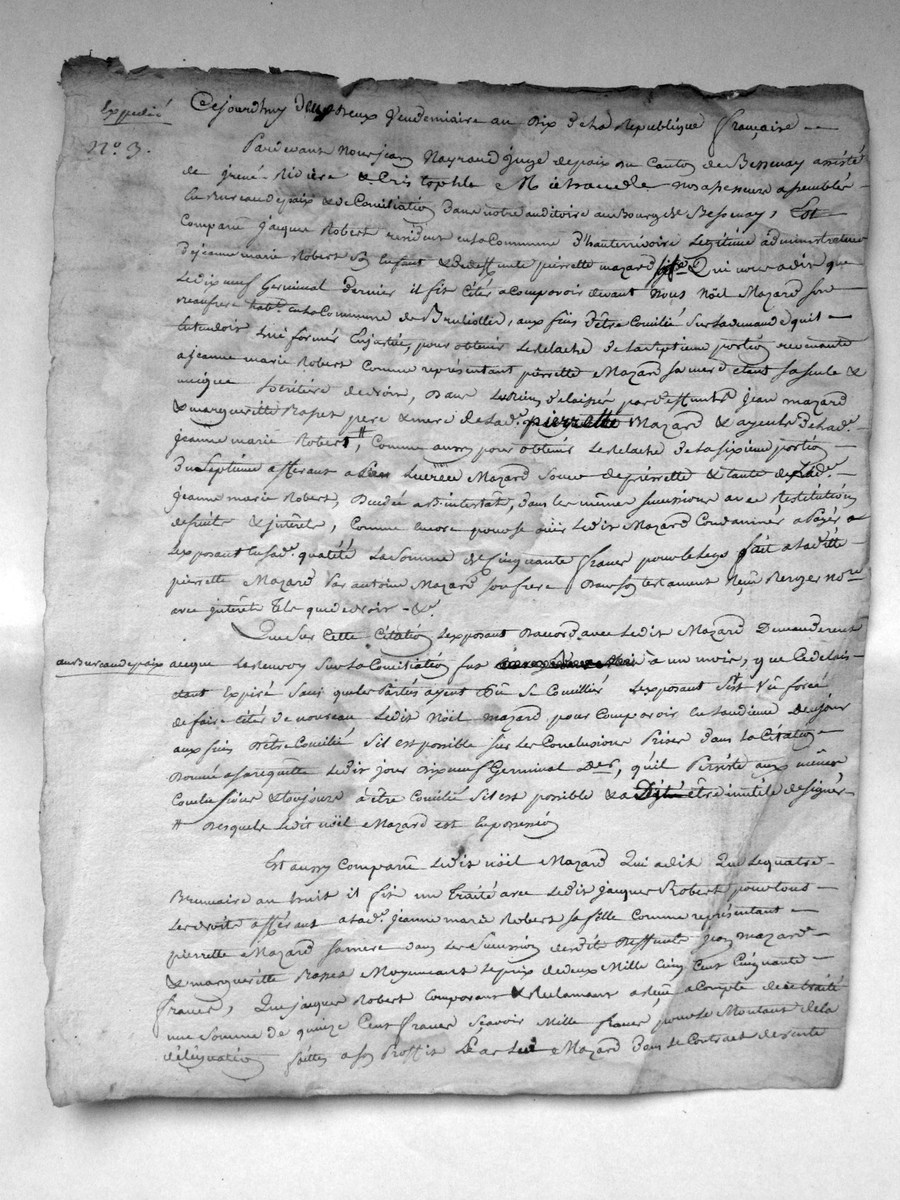 Expedié
N.o 3.
Cejourdhuy deux Vendemiaire an Dix de la Republique française
Pardevant Nous jean Nayrand juge de paix du Canton de Bessenay assisté
de Rivière & Cristophle nos assesseurs assemblés
en Bureau de paix & de Conciliation dans notre auditoire au Bourg de Bessenay, Est
Comparu Jacques Robert resident en la Commune d'hauterivoire Legitime administrateur
de jeanne marie Robert Sa Enfant & de deffunte pierrette mazard Qui nous a dit que
Le dix neuf Germinal dernier il fit Citer a Comparoir devant Nous Nöel Mazard son
beaufrere habt. en la Commune de Brullolles, aux fins d'etre Concilié Sur la demande quit
Entendoit formér En justice, pour obtenir Le relaché de la Septieme portion revenante
a jeanne marie Robert Comme representant pierrette Mazard sa mere etant sa seule &
unique heritiere de droit, Dans Les Biens delaissés par deffunts Jean mazard
& margueritte Rapes pere & mere de Lad.e pierrette Mazard & ayeuls de Lad.e
Jeanne marie Robert #, Comme aussy pour obtenir Le relaché de La sixieme portion
du Septieme afferant a Lucrece Mazard Soeur de pierrette & tante de Lad.e
Jeanne marie Robert, Decedée ab intestat, dans les même sucessions avec restitution
de fruits & interets, Comme Encore pour se Ledit Mazard Condamner a Payer a
Lexposant En Sad.e qualité La Somme de Cinquante francs pour le Legs fait a Lad.ite
pierrette Mazard Par antoine Mazard son frere Dans son testament Reçu Berger no.re
avec interets Tels que de droit &.
Que Sur Cette Citation Lexposant Daccord avec Ledit Mazard Demanderent
au Bureau de paix a ceque Le Renvoy Sur La Conciliation fut a un mois, que Ce delais
etant Expiré Sans que les Parties ayent Pu Se Conciliér Lexposant S'est Vu forcé
de faire Citér de nouveau Ledit Nöel mazard pour Comparoir En Laudience De ce jour
aux fins Detre Concilié Sil est possible Sur les Conclusions Prises dans La Citation
Donnée a sa requette Ledit jour dix neuf Germinal Der, qu'il Persiste aux mêmes
Conclusions & toujours a être Concilié Sil est possible & a être inutile de Signer
# Desquels Ledit nöel Mazard est En possession
Est aussy Comparu Ledit nöel Mazard Qui a dit Que Le quatre
Brumaire an huit il fit un traité avec Ledit jacques Robert pour tous
Les droits afférant a Lad.e jeanne marie Robert sa fille Comme représentant
pierrette Mazard sa mere dans Les Sucession desdits Deffunts Jean mazard
& margueritte Rapes Moyennant Le prix de deux Mille Cinq Cent Cinquante
francs, Que jacques Robert Comparant & Reclamant a recu a Compte de ce traité
une Somme de quinze Cent francs Scavoir Mille francs pour le Montant de la
délégation faitte a son Proffit Par Led Mazard dans le Contract de vente